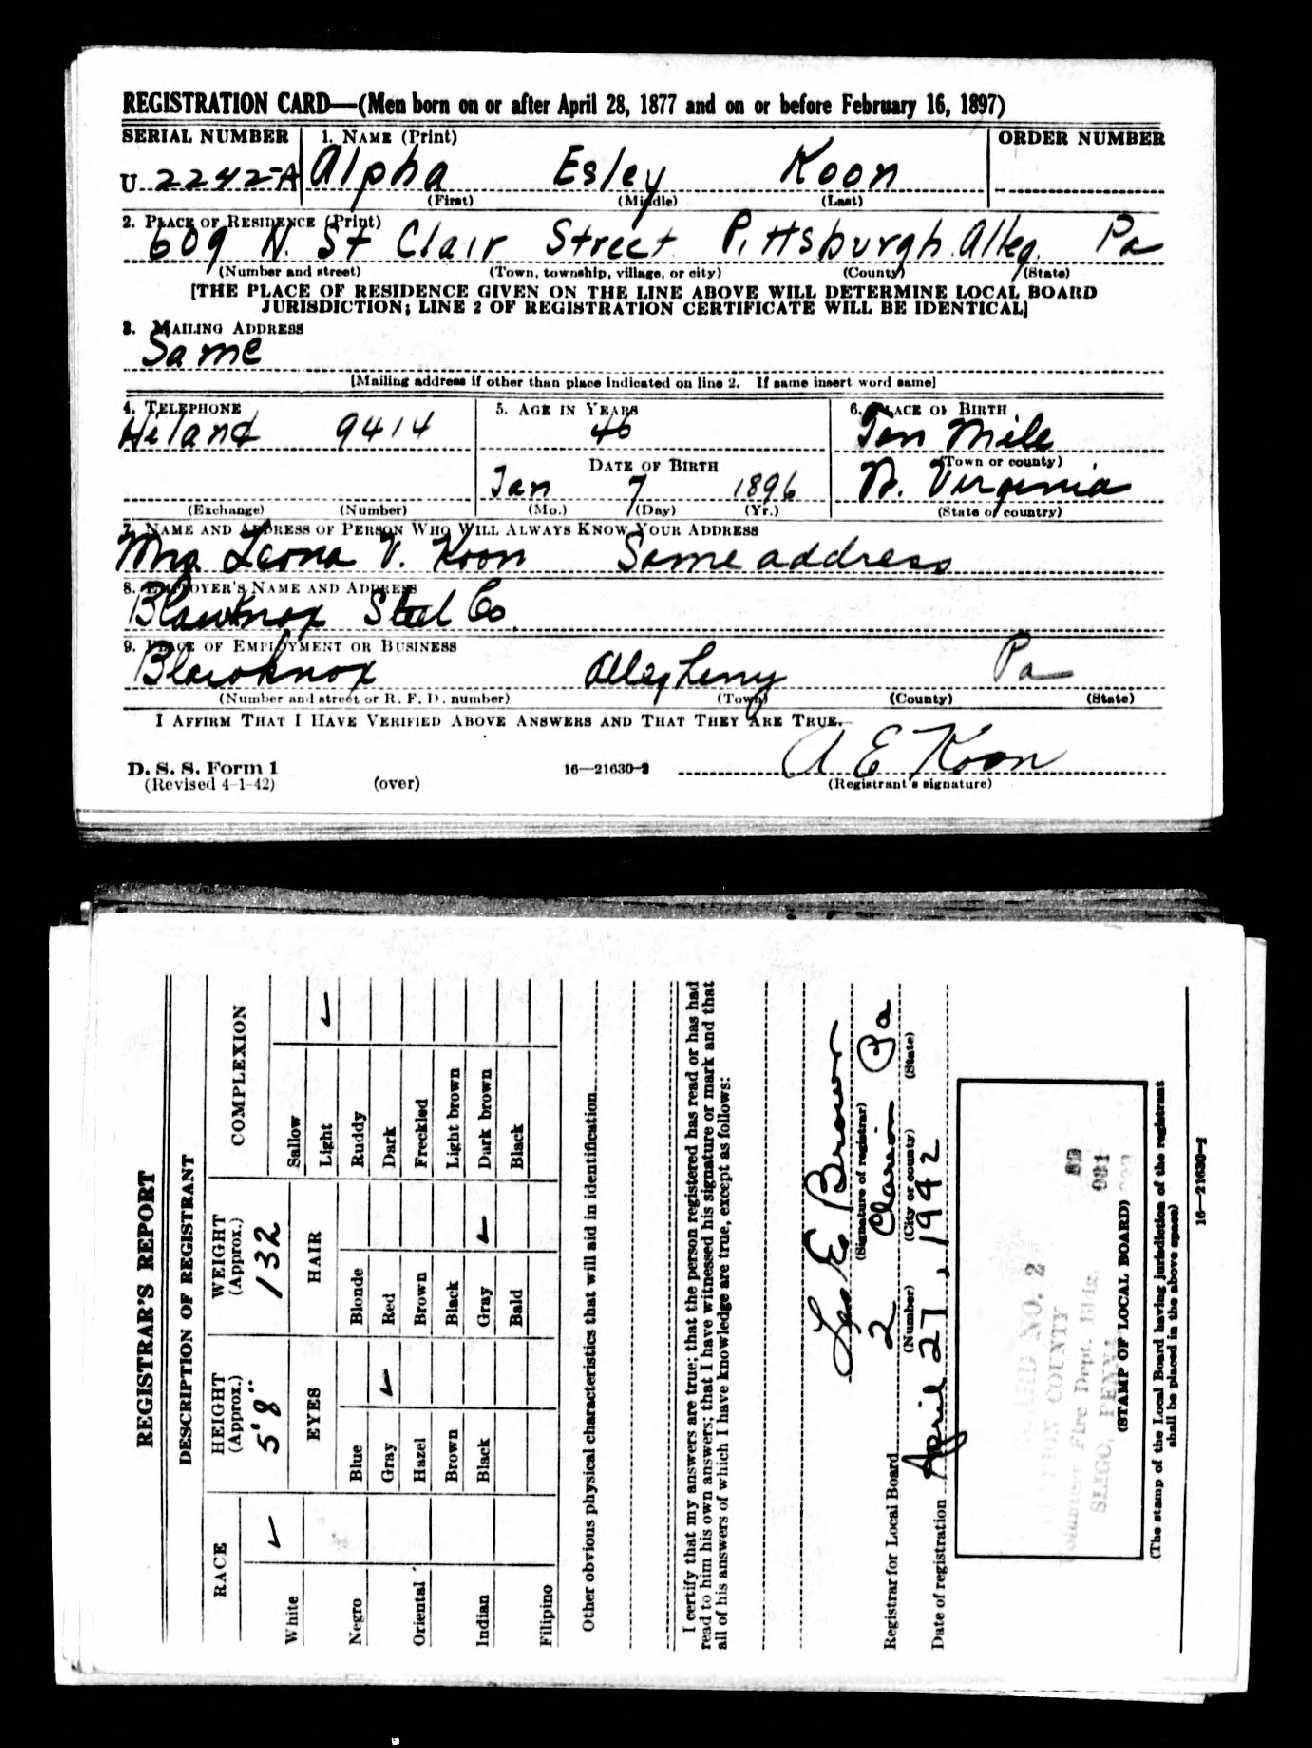 REGISTRATION CARD—(Men born on or after April 28, 1877 and on or before February 16, 1897)
SERIAL NUMBER 1. NAME (Print) ORDER NUMBER
U 2242-A Alpha Esley Koon
(First) (Middle) (Last)
2. PLACE OF RESIDENCE (Print)
609 N. St Clair Street Pittsburgh Alleg. Pa
(Number and street) (Town, township, village, or city) (County) (State)
[THE PLACE OF RESIDENCE GIVEN ON THE LINE ABOVE WILL DETERMINE LOCAL BOARD
JURISDICTION; LINE 2 OF REGISTRATION CERTIFICATE WILL BE IDENTICAL]
3. MAILING ADDRESS
Same
[Mailing address if other than place indicated on line 2. If same insert word same]
4. TELEPHONE 5. AGE IN YEARS 6. PLACE OF BIRTH
Hiland 9414 46 Ten Mile
DATE OF BIRTH (Town or county)
Jan 7 1896 W. Virginia
(Exchange) (Number) (Mo.) (Day) (Yr.) (State or country)
7. NAME AND ADDRESS OF PERSON WHO WILL ALWAYS KNOW YOUR ADDRESS
Mrs Leona V. Koon Same address
8. EMPLOYER'S NAME AND ADDRESS
Blawknox Steel Co.
9. PLACE OF EMPLOYMENT OR BUSINESS
Blawknox Allegheny Pa
(Number and street or R. F. D. number) (Town) (County) (State)
I AFFIRM THAT I HAVE VERIFIED ABOVE ANSWERS AND THAT THEY ARE TRUE.
A E Koon
D. S. S. Form 1 16—21630-2
(Revised 4-1-42) (over) (Registrant's signature)
REGISTRAR'S REPORT
DESCRIPTION OF REGISTRANT
RACE HEIGHT (Approx.) WEIGHT (Approx.) COMPLEXION
White ✓ 5'8" 132 Sallow
EYES HAIR Light ✓
Negro Blue Blonde Ruddy
Gray ✓ Red Dark
Oriental Hazel Brown Freckled
Brown Black Light brown
Indian Black Gray ✓ Dark brown
Bald Black
Filipino
Other obvious physical characteristics that will aid in identification
I certify that my answers are true; that the person registered has read or has had
read to him his own answers; that I have witnessed his signature or mark and that
all of his answers of which I have knowledge are true, except as follows:
Leo E Brown
(Signature of registrar)
Registrar for Local Board 2 Clarion Pa
(Number) (City or county) (State)
Date of registration April 27, 1942
BOARD NO. 2
COUNTY
Volunteer Fire Dept. Bldg.
SLIGO, PENNA
(STAMP OF LOCAL BOARD)
(The stamp of the Local Board having jurisdiction of the registrant
shall be placed in the above space)
16—21630-2